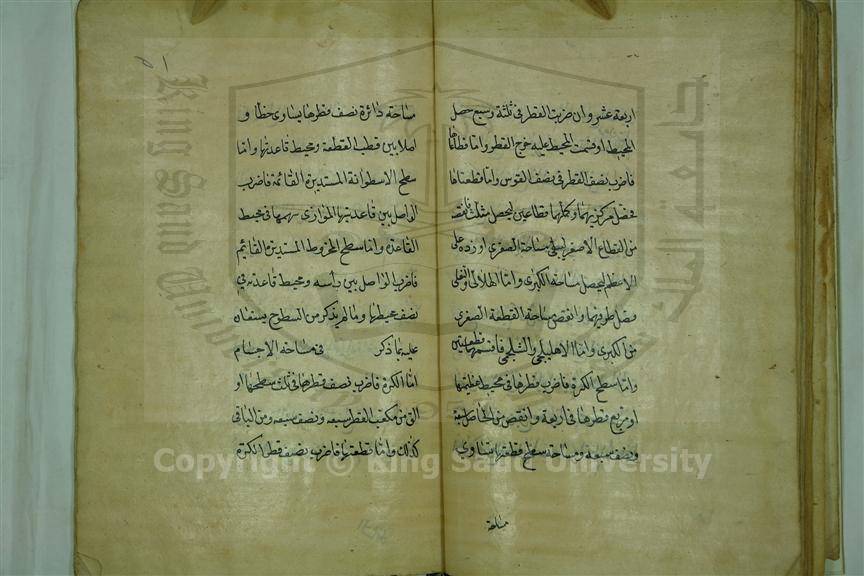 اربعة عشر وان ضربت القطر فى ثلثة وسبع حصل
المحيط او قسمت المحيط عليه خرج القطر واما قطاعاها
فاضرب نصف القطر فى نصف القوس واما قطعتاها
فحصل مركزيهما وكملهما قطاعين ليحصل مثلث فانقصه
من القطاع الاصغر ليبقى مساحة الصغرى او زده على
الاعظم ليحصل مساحة الكبرى واما الهلالى والنعلى
فصل طرفيهما وانقص مساحة القطعة الصغرى
من الكبرى واما الاهليلجى والشلجمى فاقسمهما قطعتين
واما سطح الكرة فاضرب قطرها فى محيط عظيمتها
او مربع قطرها فى اربعة وانقص من الحاصل سبعه
ونصف سبعه ومساحة سطح قطعتها يساوى
مساحة
٥١
مساحة دائرة نصف قطرها يساوى خطا و
اصلا بين قطب القطعة ومحيط قاعدتها واما
سطح الاسطوانة المستديرة القائمة فاضرب
الواصل بين قاعدتيها الموازى لسهمها فى محيط
القاعدة واما سطح المخروط المستديرة القائيم
فاضرب الواصل بين رأسه ومحيط قاعدته فى
نصف محيطها وما لم يذكر من السطوح يستعان
عليه بما ذكر فى مساحة الاجسام
اما الكرة فاضرب نصف قطرها فى ثلث سطحها او
الق من مكعب القطر سبعه ونصف سبعه ومن الباقى
كذلك واما قطعتها فاضرب نصف قطر الكرة
جامعة الملك سعود
King Saud University
Copyright © King Saud University